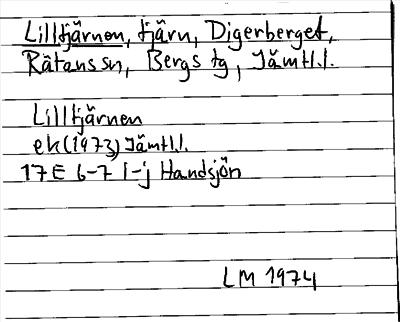 Lilltjärnen, tjärn, Digerberget,
Rätans sn, Bergs tg, Jämtl.l.
Lilltjärnen
ek (1973) Jämtl.l.
17 E 6-7 i-j Handsjön
LM 1974